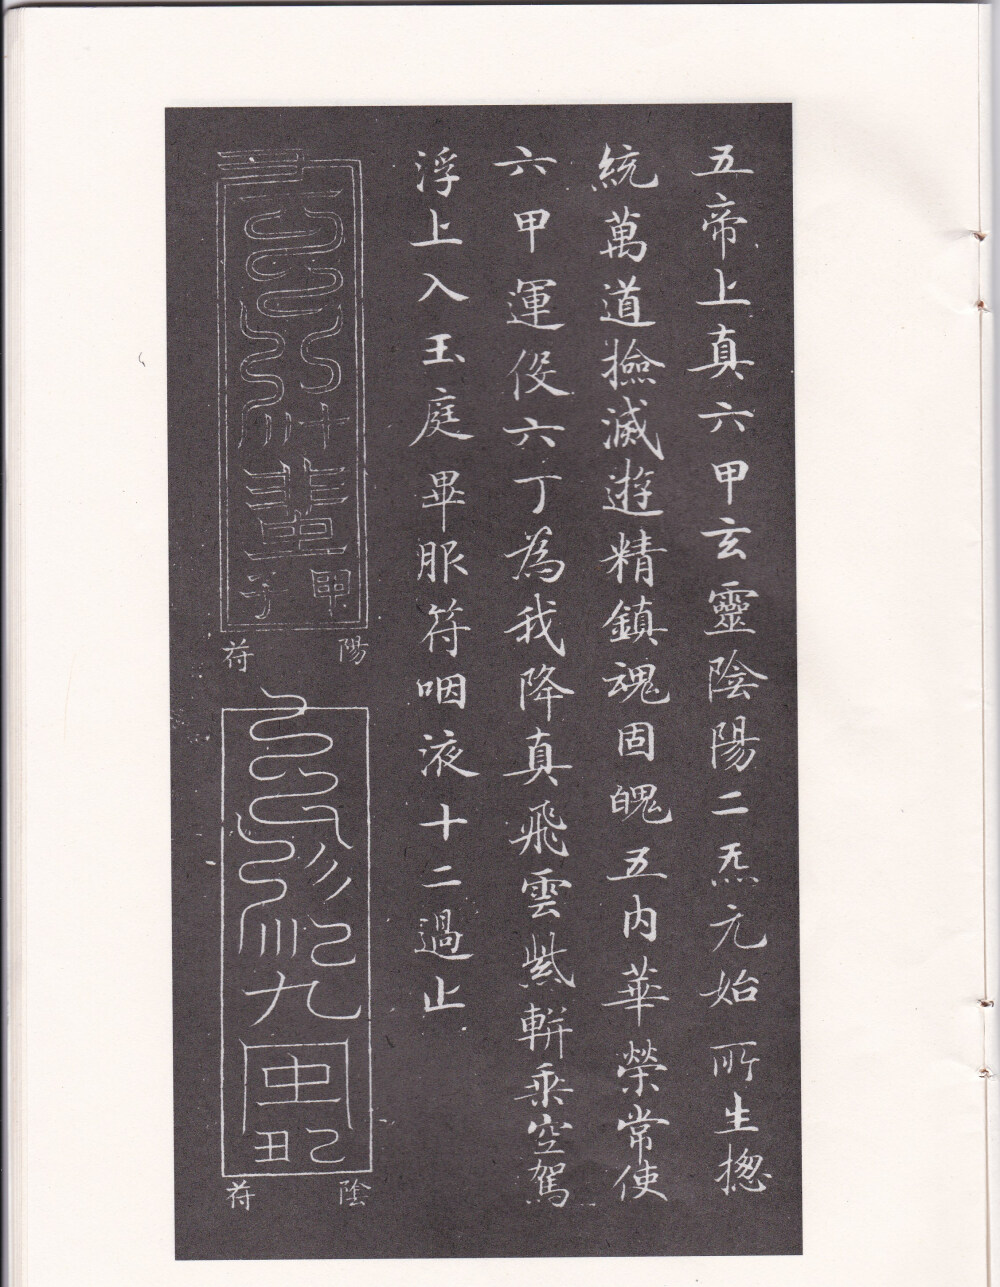 五帝上真六甲玄靈陰陽二炁元始所生揔
統萬道撿滅遊精鎮魂固魄五內華榮常使
六甲運役六丁為我降真飛雲紫軿乘空駕
浮上入玉庭畢服符咽液十二過止
甲子
陽符
己丑
陰符